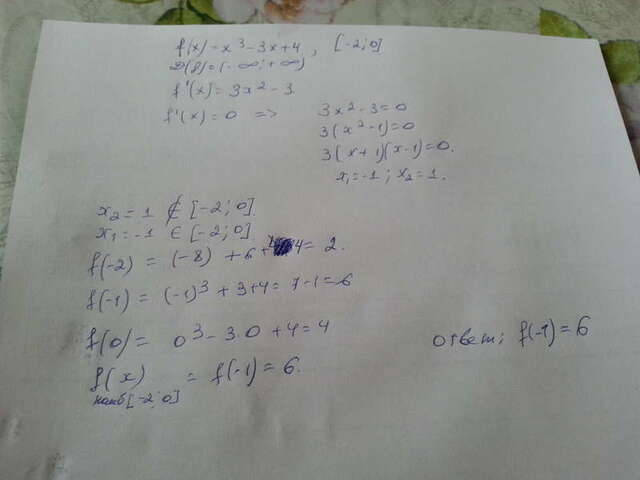 f(x) = x³ - 3x + 4 , [-2; 0]
D(f) = (-∞; +∞)
f'(x) = 3x² - 3.
f'(x) = 0 => 3x² - 3 = 0
3(x² - 1) = 0
3(x + 1)(x - 1) = 0.
x₁ = -1 ; x₂ = 1.
x₂ = 1 ∉ [-2; 0].
x₁ = -1 ∈ [-2; 0].
f(-2) = (-8) + 6 + 4 = 2.
f(-1) = (-1)³ + 3 + 4 = 7 - 1 = 6
f(0) = 0³ - 3·0 + 4 = 4
ответ; f(-1) = 6
f(x) = f(-1) = 6.
наиб [-2; 0]